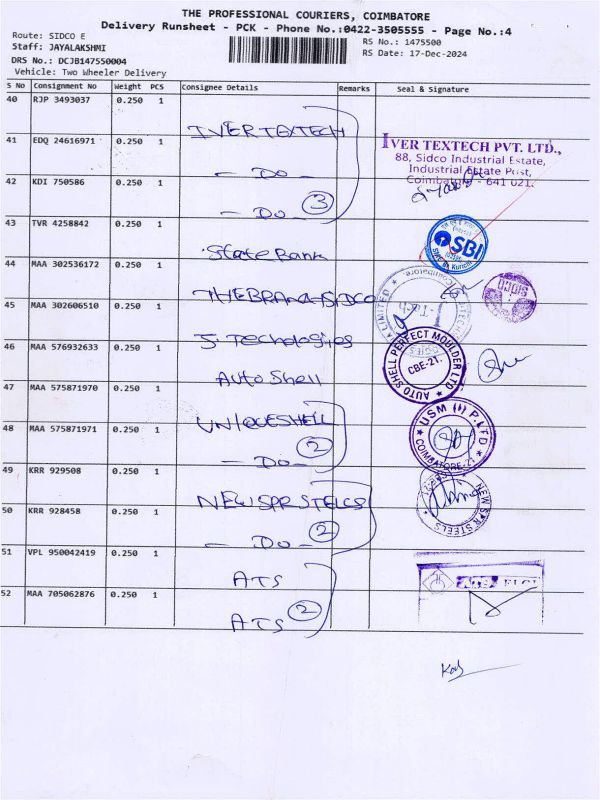 THE PROFESSIONAL COURIERS, COIMBATORE
Delivery Runsheet - PCK - Phone No.:0422-3505555 - Page No.:4
Route: SIDCO E
RS No.: 1475500
Staff: JAYALAKSHMI
RS Date: 17-Dec-2024
DRS No.: DCJB147550004
Vehicle: Two Wheeler Delivery
S No Consignment No Weight PCS Consignee Details Remarks Seal & Signature
40 RJP 3493037 0.250 1 IVER TEXTECH
41 EDQ 24616971 0.250 1 - Do -
IVER TEXTECH PVT. LTD.,
88, Sidco Industrial Estate,
Industrial Estate Post,
Coimbatore - 641 021.
42 KDI 750586 0.250 1 - Do - 3
43 TVR 4258842 0.250 1 State Bank
SBI
44 MAA 302536172 0.250 1 SIDCO
45 MAA 302606510 0.250 1
46 MAA 576932633 0.250 1 Auto Shell
AUTO SHELL PERFECT MOULDER LTD
CBE-21.
47 MAA 575871970 0.250 1 UNIQUESHELL
48 MAA 575871971 0.250 1 - Do - 2
USM (I) P.LTD
COIMBATORE-21
49 KRR 929508 0.250 1
50 KRR 928458 0.250 1 - Do - 2
NEW SPR STEELS
51 VPL 950042419 0.250 1 ATS
52 MAA 705062876 0.250 1 ATS 2